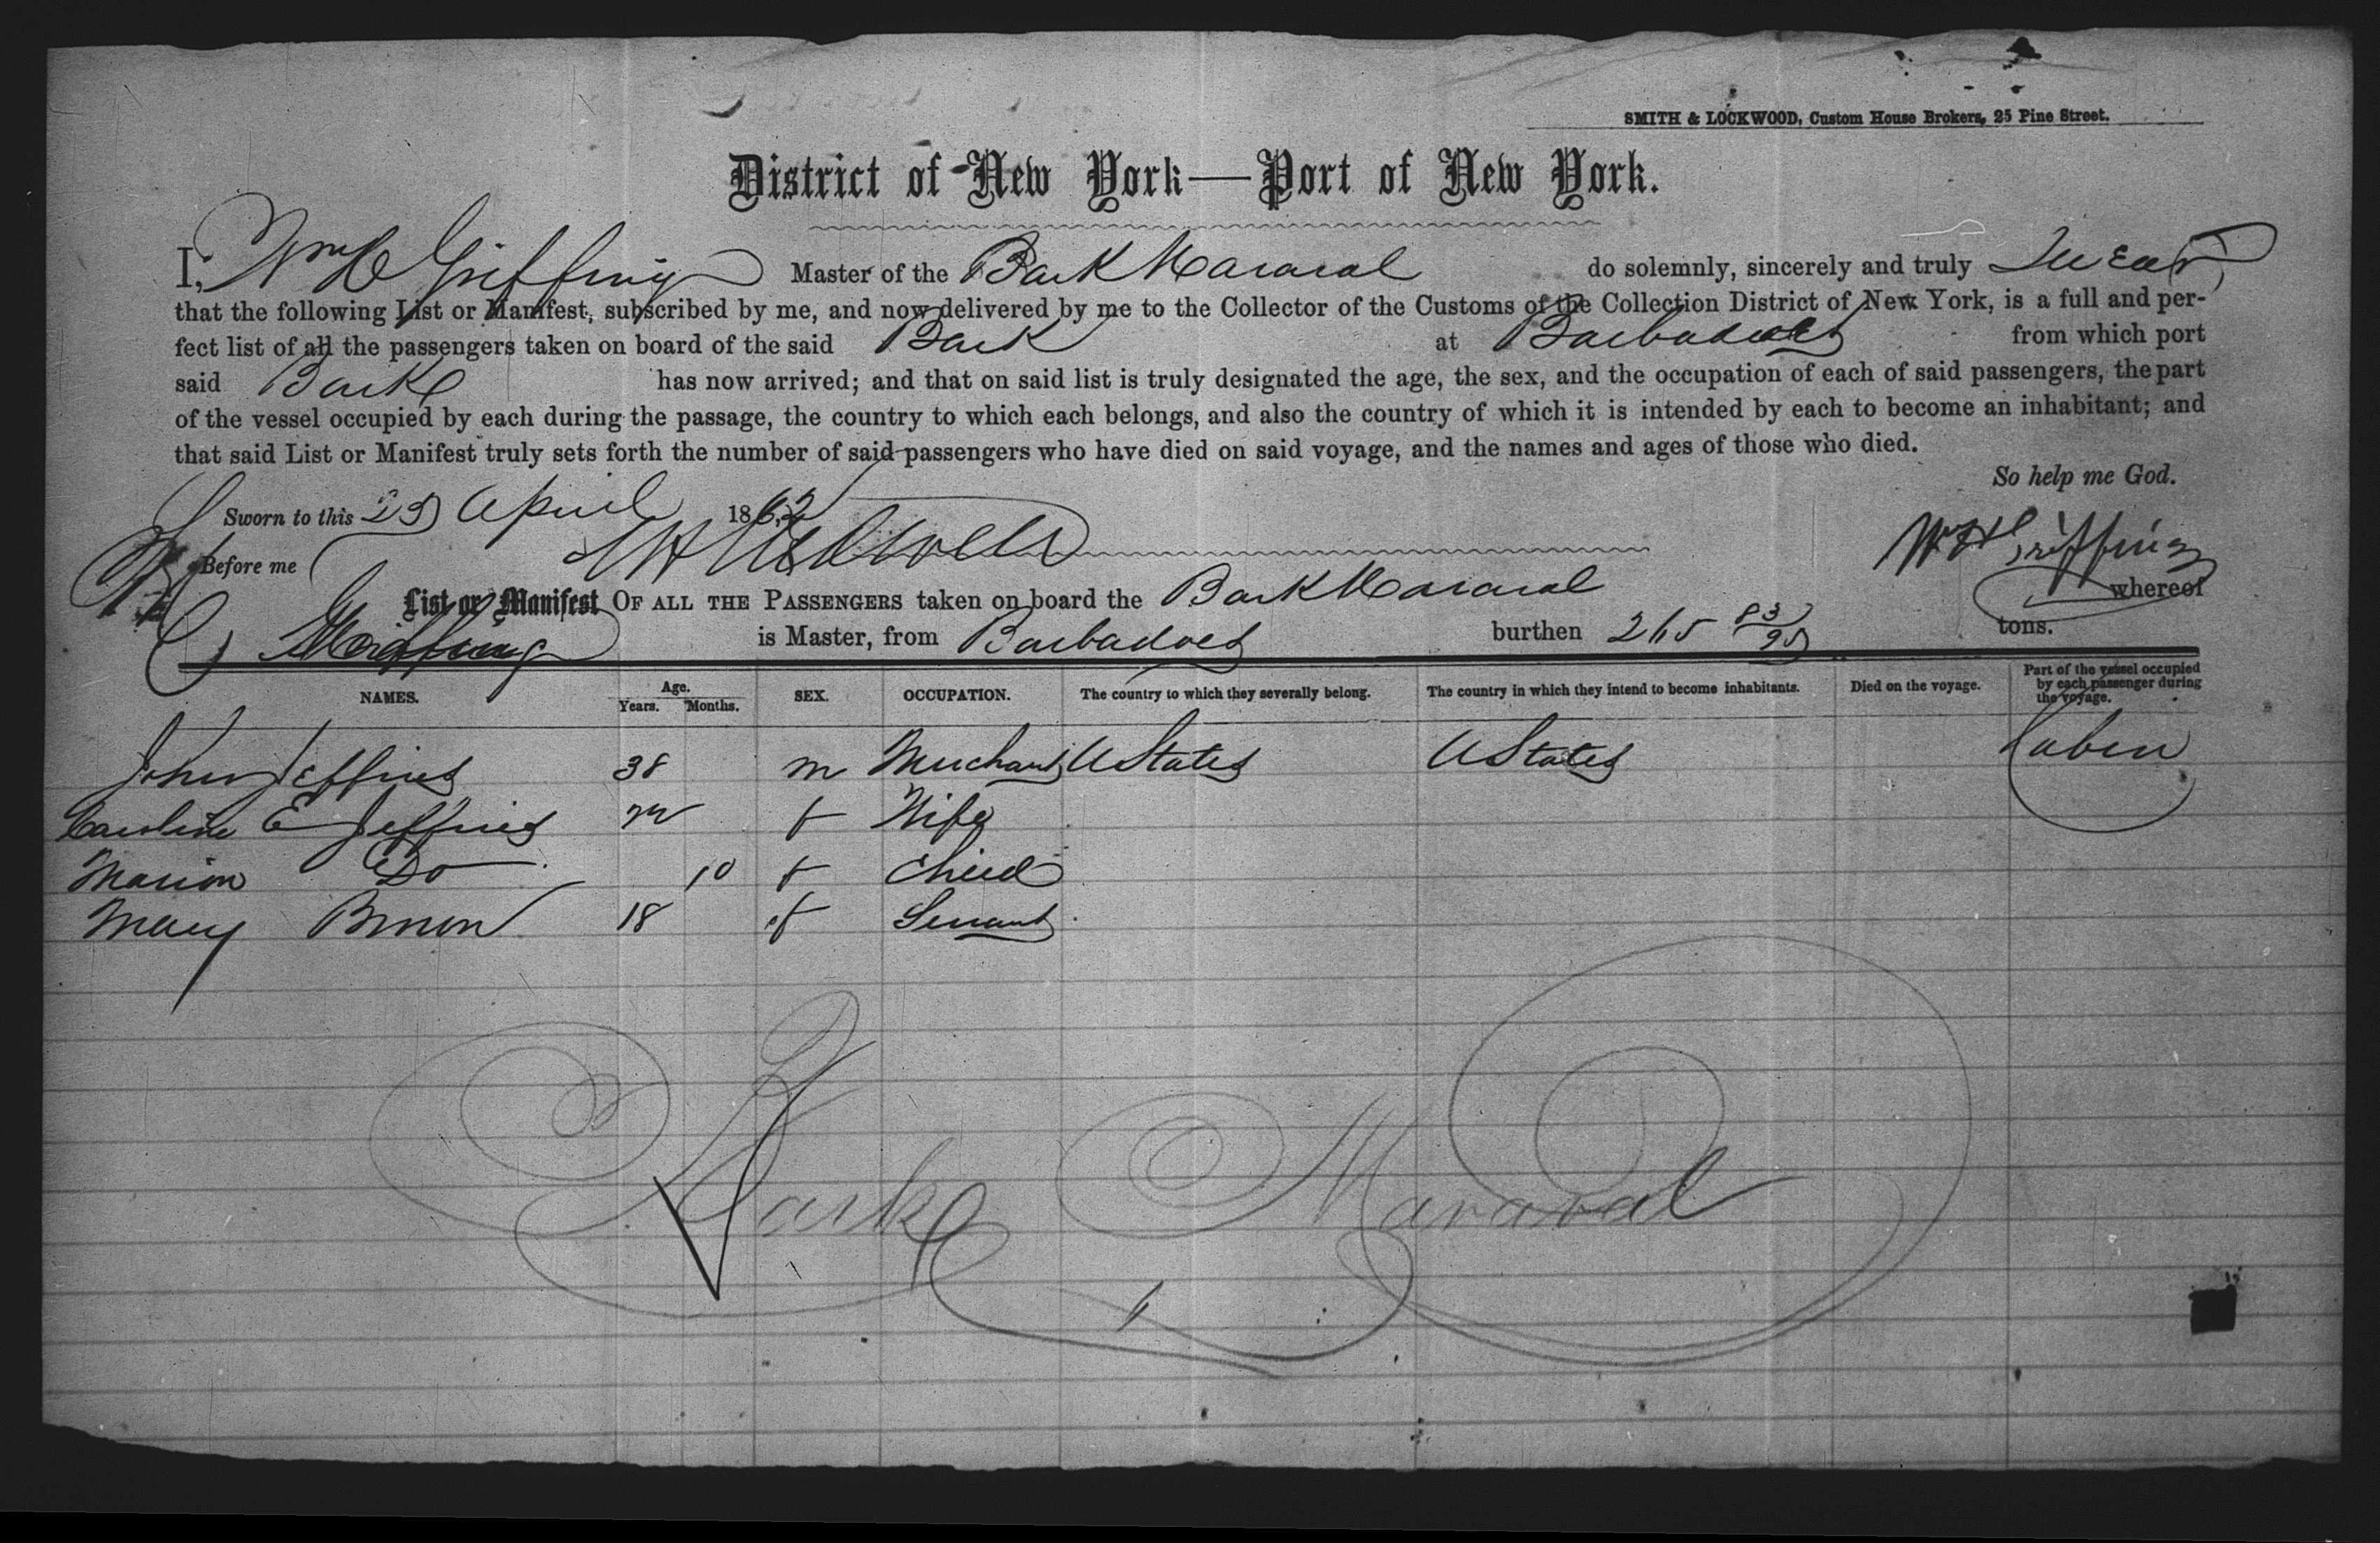 SMITH & LOCKWOOD, Custom House Brokers, 25 Pine Street.
District of New York—Port of New York.
I, Wm H Griffing Master of the Bark Maraval do solemnly, sincerely and truly Swear
that the following List or Manifest, subscribed by me, and now delivered by me to the Collector of the Customs of the Collection District of New York, is a full and per-
fect list of all the passengers taken on board of the said Bark at Barbadoes from which port
said Bark has now arrived; and that on said list is truly designated the age, the sex, and the occupation of each of said passengers, the part
of the vessel occupied by each during the passage, the country to which each belongs, and also the country of which it is intended by each to become an inhabitant; and
that said List or Manifest truly sets forth the number of said passengers who have died on said voyage, and the names and ages of those who died.
So help me God.
Sworn to this 23 April 1862
Before me
W H Griffing
List or Manifest OF ALL THE PASSENGERS taken on board the Bark Maraval whereof
Griffing is Master, from Barbadoes burthen 265 83/95 tons.
NAMES. Age. Years. Months. SEX. OCCUPATION. The country to which they severally belong. The country in which they intend to become inhabitants. Died on the voyage. Part of the vessel occupied by each passenger during the voyage.
John Jeffries 38 m Merchant U States U States Cabin
Caroline E Jeffries f Wife
Marion Do 10 f Child
Mary Brown 18 f Servant
Bark Maraval